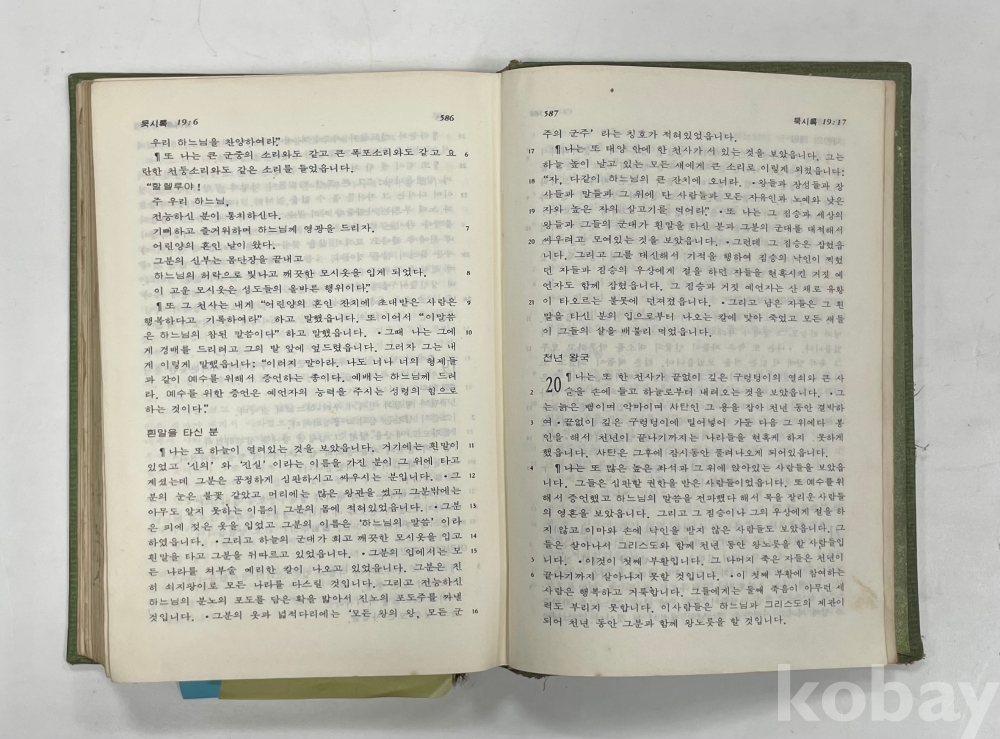 묵시록 19:6
586
우리 하느님을 찬양하여라."
¶또 나는 큰 군중의 소리와도 같고 큰 폭포소리와도 같고 요 6
란한 천둥소리와도 같은 소리를 들었습니다.
"할렐루야!
주 우리 하느님,
전능하신 분이 통치하신다.
기뻐하고 즐거워하며 하느님께 영광을 드리자. 7
어린양의 혼인 날이 왔다.
그분의 신부는 몸단장을 끝내고
하느님의 허락으로 빛나고 깨끗한 모시옷을 입게 되었다. 8
이 고운 모시옷은 성도들의 올바른 행위이다."
¶또 그 천사는 내게 "어린양의 혼인 잔치에 초대받은 사람은 9
행복하다고 기록하여라" 하고 말했습니다. 또 이어서 "이말씀
은 하느님의 참된 말씀이다" 하고 말했습니다. ·그때 나는 그에 10
게 경배를 드리려고 그의 발 앞에 엎드렸습니다. 그러자 그는 내
게 이렇게 말했습니다: "이러지 말아라. 나도 너나 너의 형제들
과 같이 예수를 위해서 증언하는 종이다. 예배는 하느님께 드려
라. 예수를 위한 증언은 예언자의 능력을 주시는 성령의 힘으로
하는 것이다."
흰말을 타신 분
¶나는 또 하늘이 열려있는 것을 보았습니다. 거기에는 흰말이 11
있었고 '신의'와 '진실'이라는 이름을 가진 분이 그 위에 타고
계셨는데 그분은 공정하게 심판하시고 싸우시는 분입니다. ·그 12
분의 눈은 불꽃 같았고 머리에는 많은 왕관을 썼고 그분밖에는
아무도 알지 못하는 이름이 그분의 몸에 적혀있었습니다. ·그분 13
은 피에 젖은 옷을 입었고 그분의 이름은 '하느님의 말씀'이라
하였습니다. ·그리고 하늘의 군대가 희고 깨끗한 모시옷을 입고 14
흰말을 타고 그분을 뒤따르고 있었습니다. ·그분의 입에서는 모 15
든 나라를 쳐부술 예리한 칼이 나오고 있었습니다. 그분은 친
히 쇠지팡이로 모든 나라를 다스릴 것입니다. 그리고 전능하신
하느님의 분노의 포도를 담은 확을 밟아서 진노의 포도주를 짜낼
것입니다. ·그분의 옷과 넓적다리에는 '모든 왕의 왕, 모든 군 16
587
묵시록 19:17
주의 군주' 라는 칭호가 적혀있었습니다.
17 ¶나는 또 태양 안에 한 천사가 서 있는 것을 보았습니다. 그는
하늘 높이 날고 있는 모든 새에게 큰 소리로 이렇게 외쳤습니다:
18 "자, 다같이 하느님의 큰 잔치에 오너라. ·왕들과 장성들과 장
사들과 말들과 그 위에 탄 사람들과 모든 자유인과 노예와 낮은
19 자와 높은 자의 살고기를 먹어라." ·또 나는 그 짐승과 세상의
왕들과 그들의 군대가 흰말을 타신 분과 그분의 군대를 대적해서
20 싸우려고 모여있는 것을 보았습니다. ·그런데 그 짐승은 잡혔습
니다. 그리고 그를 대신해서 기적을 행하여 짐승의 낙인이 찍혔
던 자들과 짐승의 우상에게 절을 하던 자들을 현혹시킨 거짓 예
언자도 함께 잡혔습니다. 그 짐승과 거짓 예언자는 산 채로 유황
21 이 타오르는 불못에 던져졌습니다. ·그리고 남은 자들은 그 흰
말을 타신 분의 입으로부터 나오는 칼에 맞아 죽었고 모든 새들
이 그들의 살을 배불리 먹었습니다.
천년 왕국
20 ¶나는 또 한 천사가 끝없이 깊은 구렁텅이의 열쇠와 큰 사
2 슬을 손에 들고 하늘로부터 내려오는 것을 보았습니다. ·그
는 늙은 뱀이며 악마이며 사탄인 그 용을 잡아 천년 동안 결박하
3 여 ·끝없이 깊은 구렁텅이에 밀어넣어 가둔 다음 그 위에다 봉
인을 해서 천년이 끝나기까지는 나라들을 현혹게 하지 못하게
했습니다. 사탄은 그후에 잠시동안 풀려나오게 되어있습니다.
4 ¶나는 또 많은 높은 좌석과 그 위에 앉아있는 사람들을 보았습
니다. 그들은 심판할 권한을 받은 사람들이었습니다. 또 예수를위
해서 증언했고 하느님의 말씀을 전파했다 해서 목을 잘리운사람들
의 영혼을 보았습니다. 그리고 그 짐승이나 그의 우상에게 절을 하
지 않고 이마와 손에 낙인을 받지 않은 사람들도 보았습니다. 그
들은 살아나서 그리스도와 함께 천년 동안 왕노릇을 할 사람들입
5 니다. ·이것이 첫째 부활입니다. 그 나머지 죽은 자들은 천년이
6 끝나기까지 살아나지 못할 것입니다. ·이 첫째 부활에 참여하는
사람은 행복하고 거룩합니다. 그들에게는 둘째 죽음이 아무런 세
력도 부리지 못합니다. 이사람들은 하느님과 그리스도의 제관이
되어 천년 동안 그분과 함께 왕노릇을 할 것입니다.
kobay